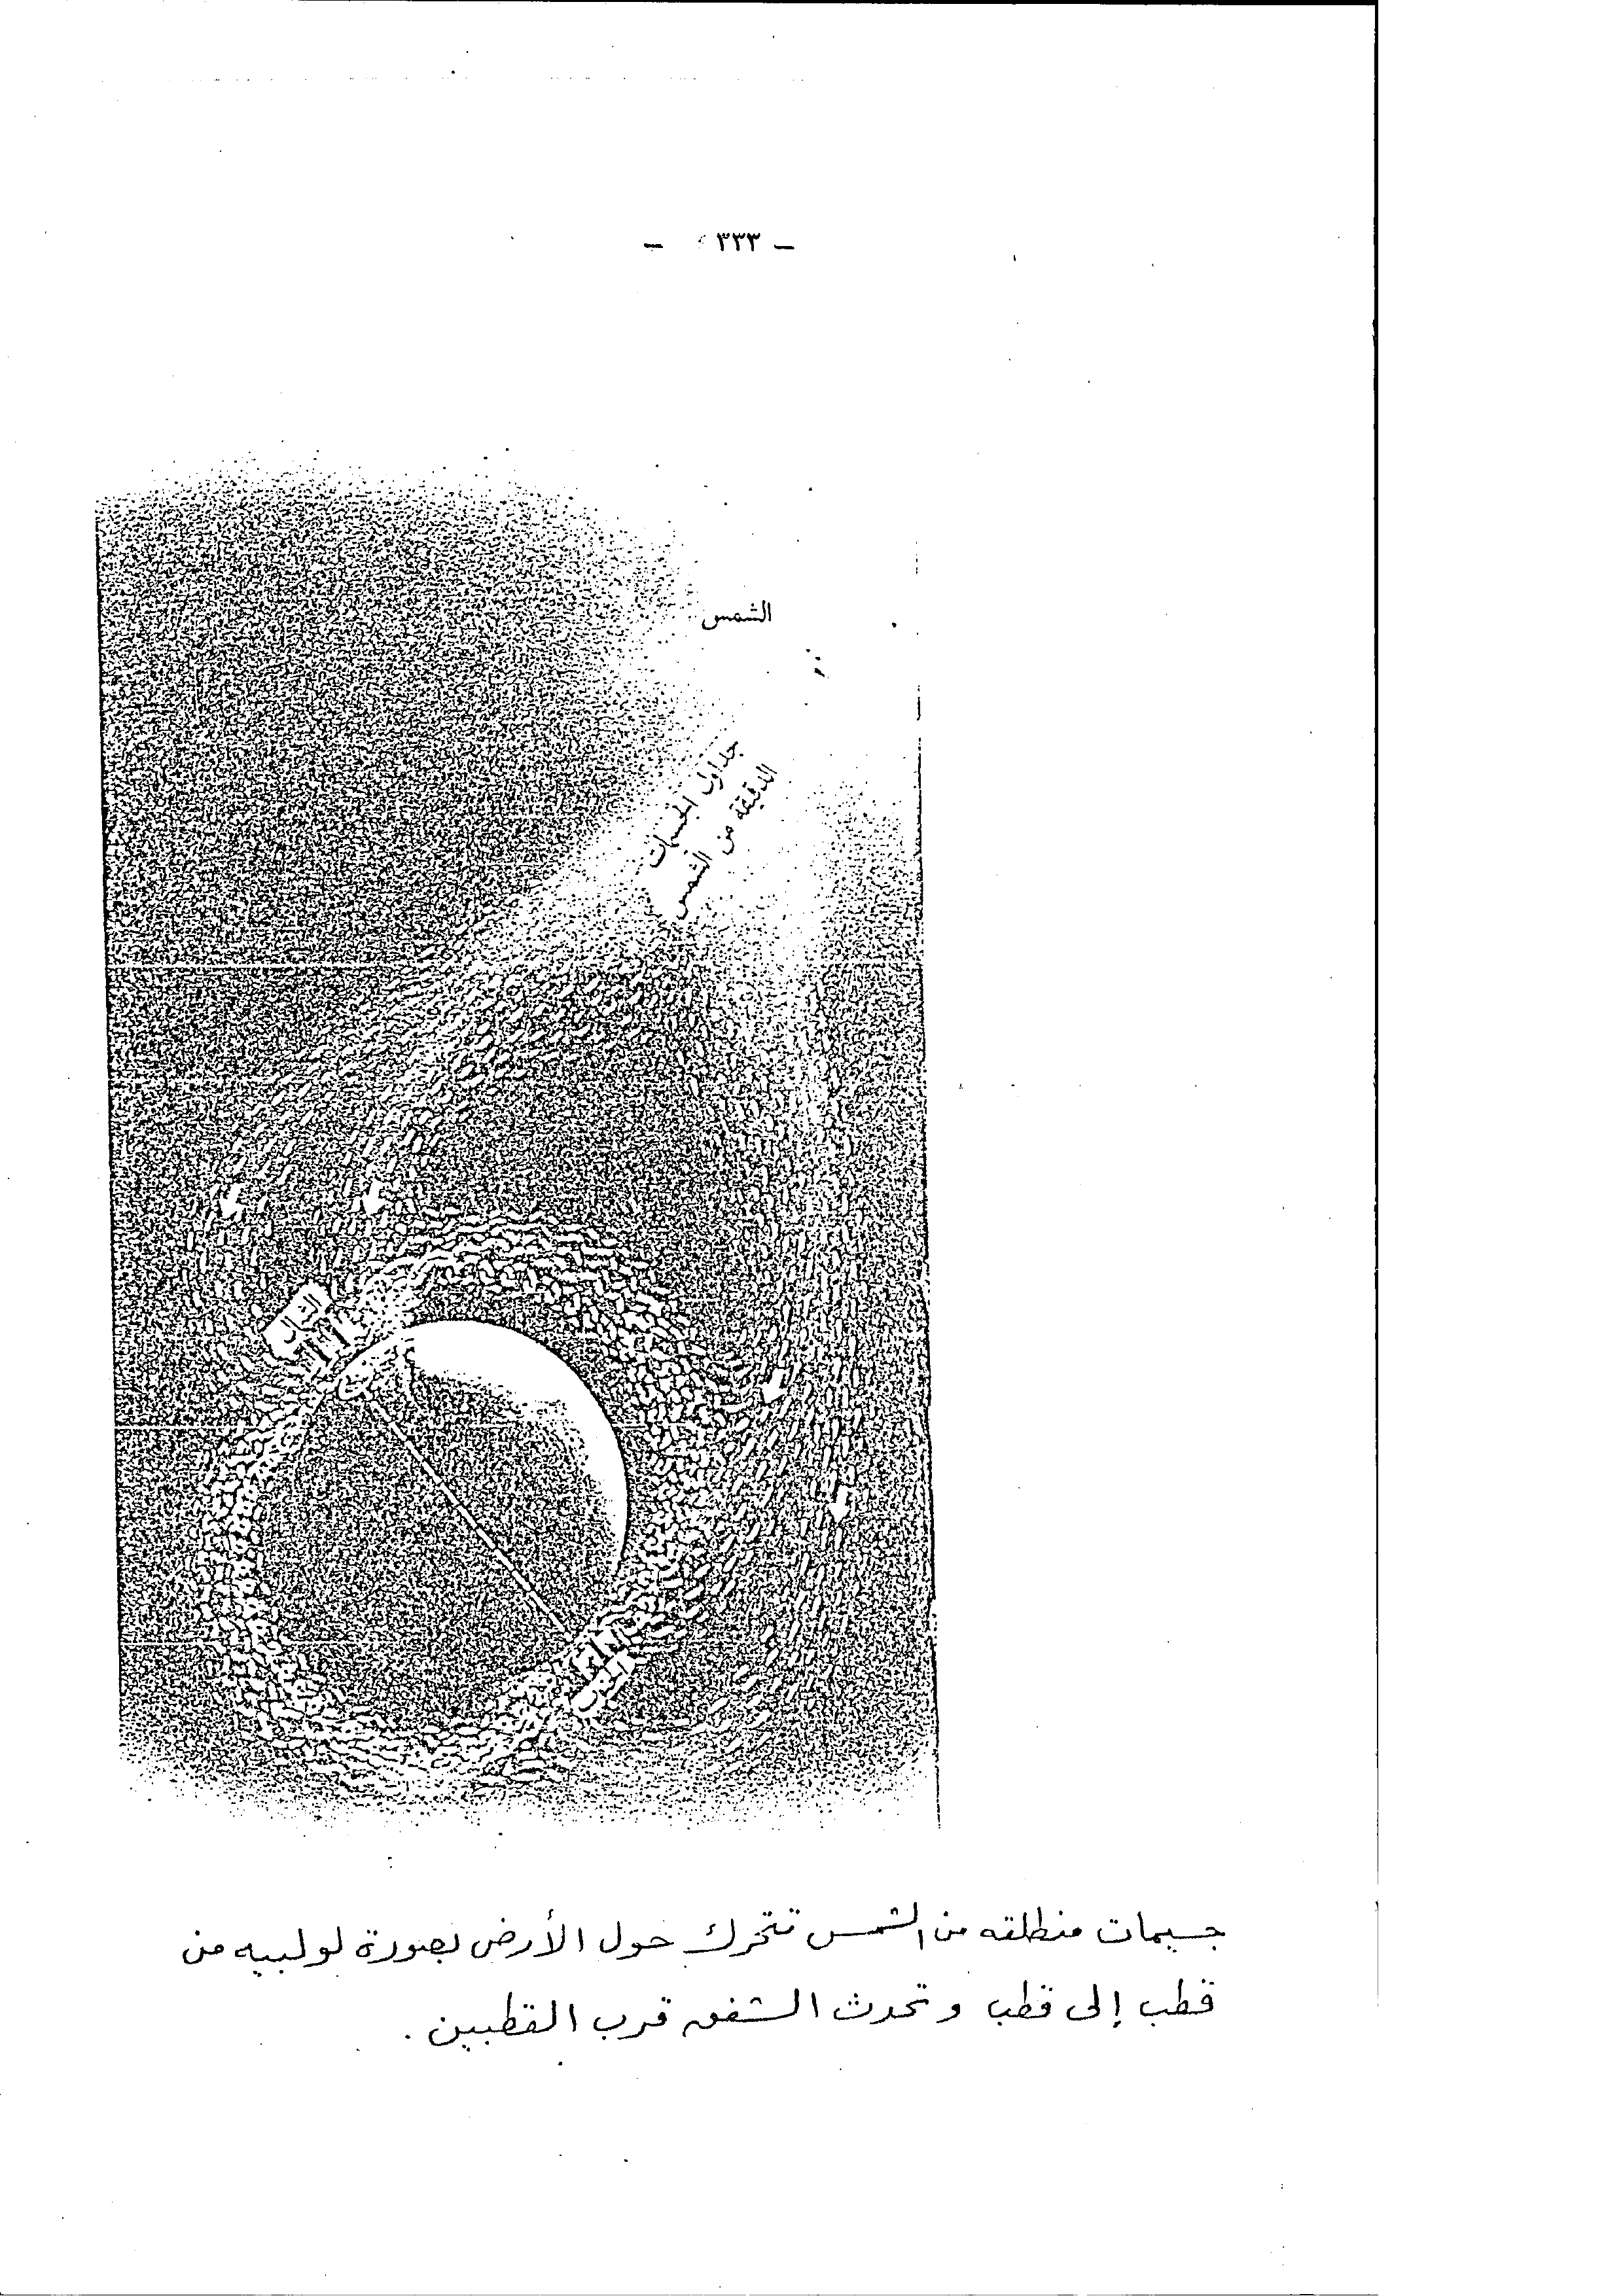 - ٣٣٣ -
الشمس
جداول الجسيمات
الدقيقة من الشمس
جسيمات منطلقه من الشمس تتحرك حول الأرض بصورة لولبيه من
قطب إلى قطب وتحدث الشفق قرب القطبين .